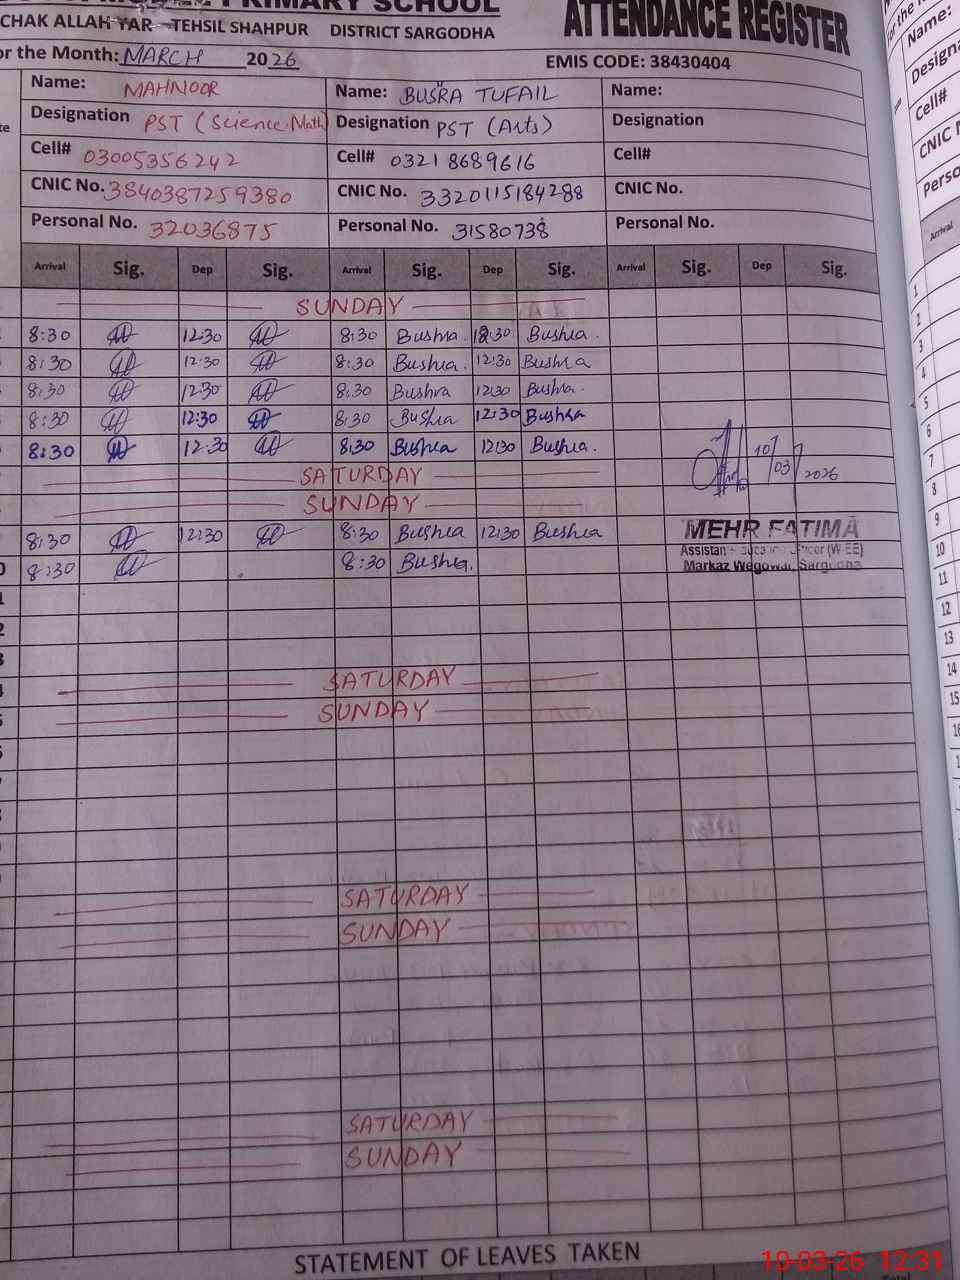 PRIMARY SCHOOL
ATTENDANCE REGISTER
CHAK ALLAH YAR TEHSIL SHAHPUR DISTRICT SARGODHA
or the Month: MARCH 2026
EMIS CODE: 38430404
Name: MAHNOOR Name: BUSRA TUFAIL Name:
Designation PST (Science.Math) Designation PST (Arts) Designation
Cell# 03005356242 Cell# 03218689616 Cell#
CNIC No. 3840387259380 CNIC No. 3320115184288 CNIC No.
Personal No. 32036875 Personal No. 31580738 Personal No.
Arrival Sig. Dep Sig. Arrival Sig. Dep Sig. Arrival Sig. Dep Sig.
SUNDAY
8:30 12:30 8:30 Bushra. 12:30 Bushra.
8:30 12:30 8:30 Bushra. 12:30 Bushra
8:30 12:30 8:30 Bushra 12:30 Bushra.
8:30 12:30 8:30 Bushra 12:30 Bushra
8:30 12:30 8:30 Bushra 12:30 Bushra.
10/03/2026
SATURDAY
SUNDAY
8:30 12:30 8:30 Bushra 12:30 Bushra
8:30 8:30 Bushra.
MEHR FATIMA
Markaz Wegowal, Sargodha
SATURDAY
SUNDAY
SATURDAY
SUNDAY
SATURDAY
SUNDAY
STATEMENT OF LEAVES TAKEN
Name:
Cell#
Arrival
1
2
3
4
5
6
7
8
9
10
11
12
13
14
15
10-03-26 12:31